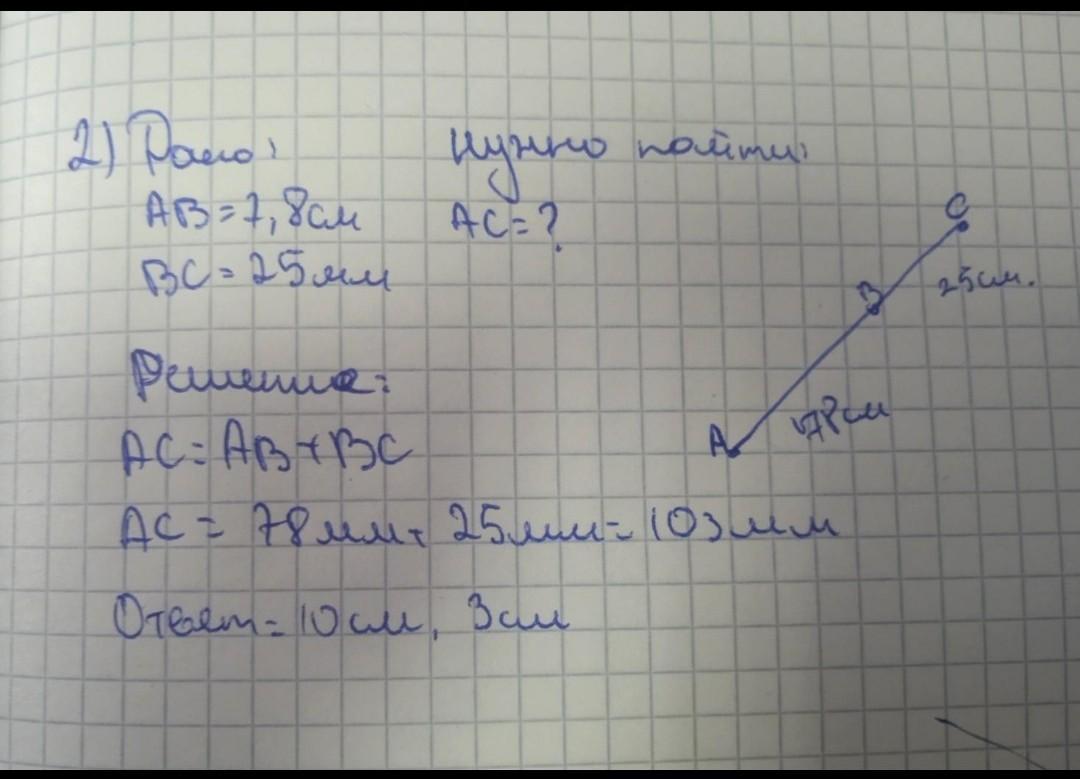 2) Дано: Нужно найти:
AB = 7,8см AC = ?
BC = 25мм
C
B 25см.
Решение:
A 78см
AC = AB + BC
AC = 78мм + 25мм = 103мм
Ответ = 10см, 3см